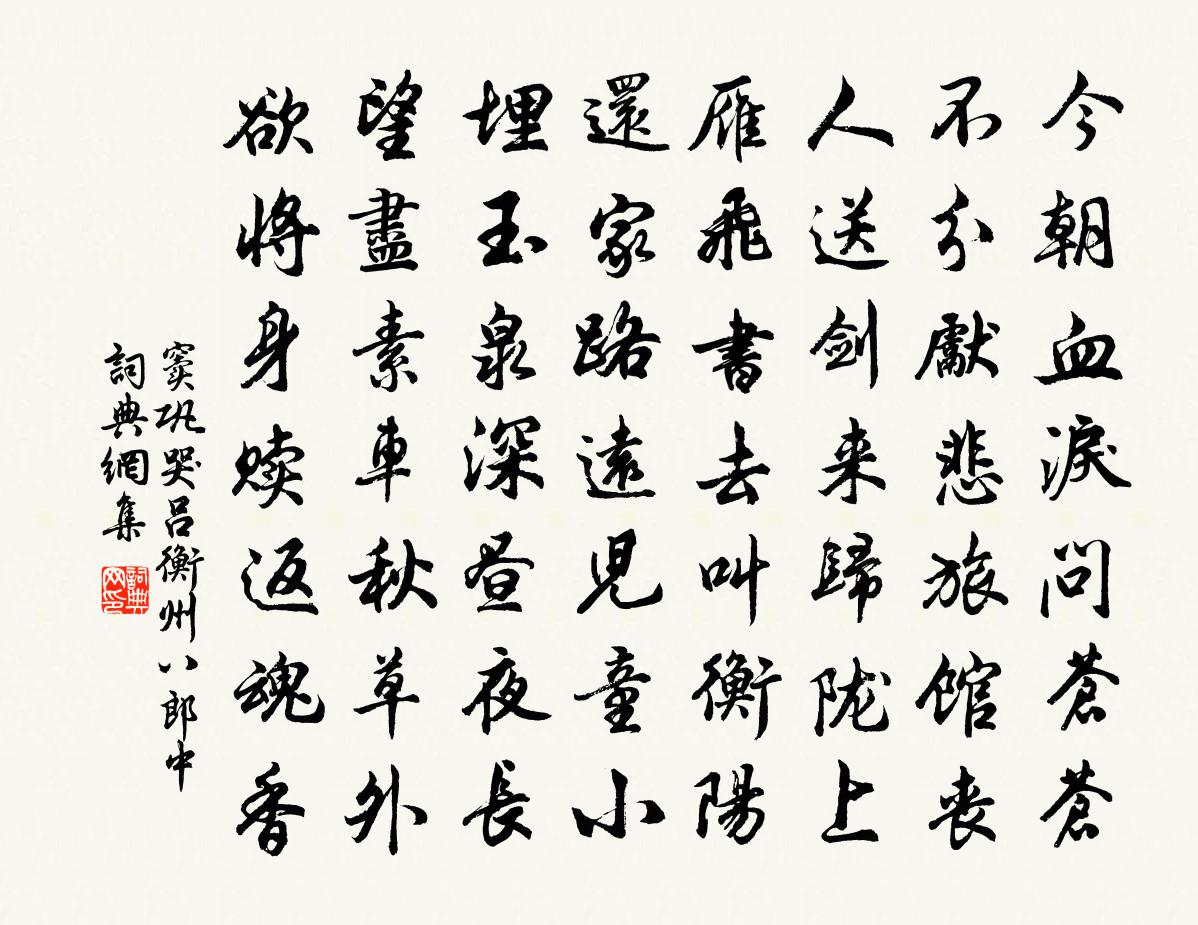 今朝血淚問蒼蒼
不分獻悲旅館喪
人送劍来歸陇上
雁飛書去叫衡陽
還家路遠兒童小
埋玉泉深昼夜長
望盡素車秋草外
欲将身赎返魂香
窦巩哭吕衡州八郎中
詞典網集
詞典網印